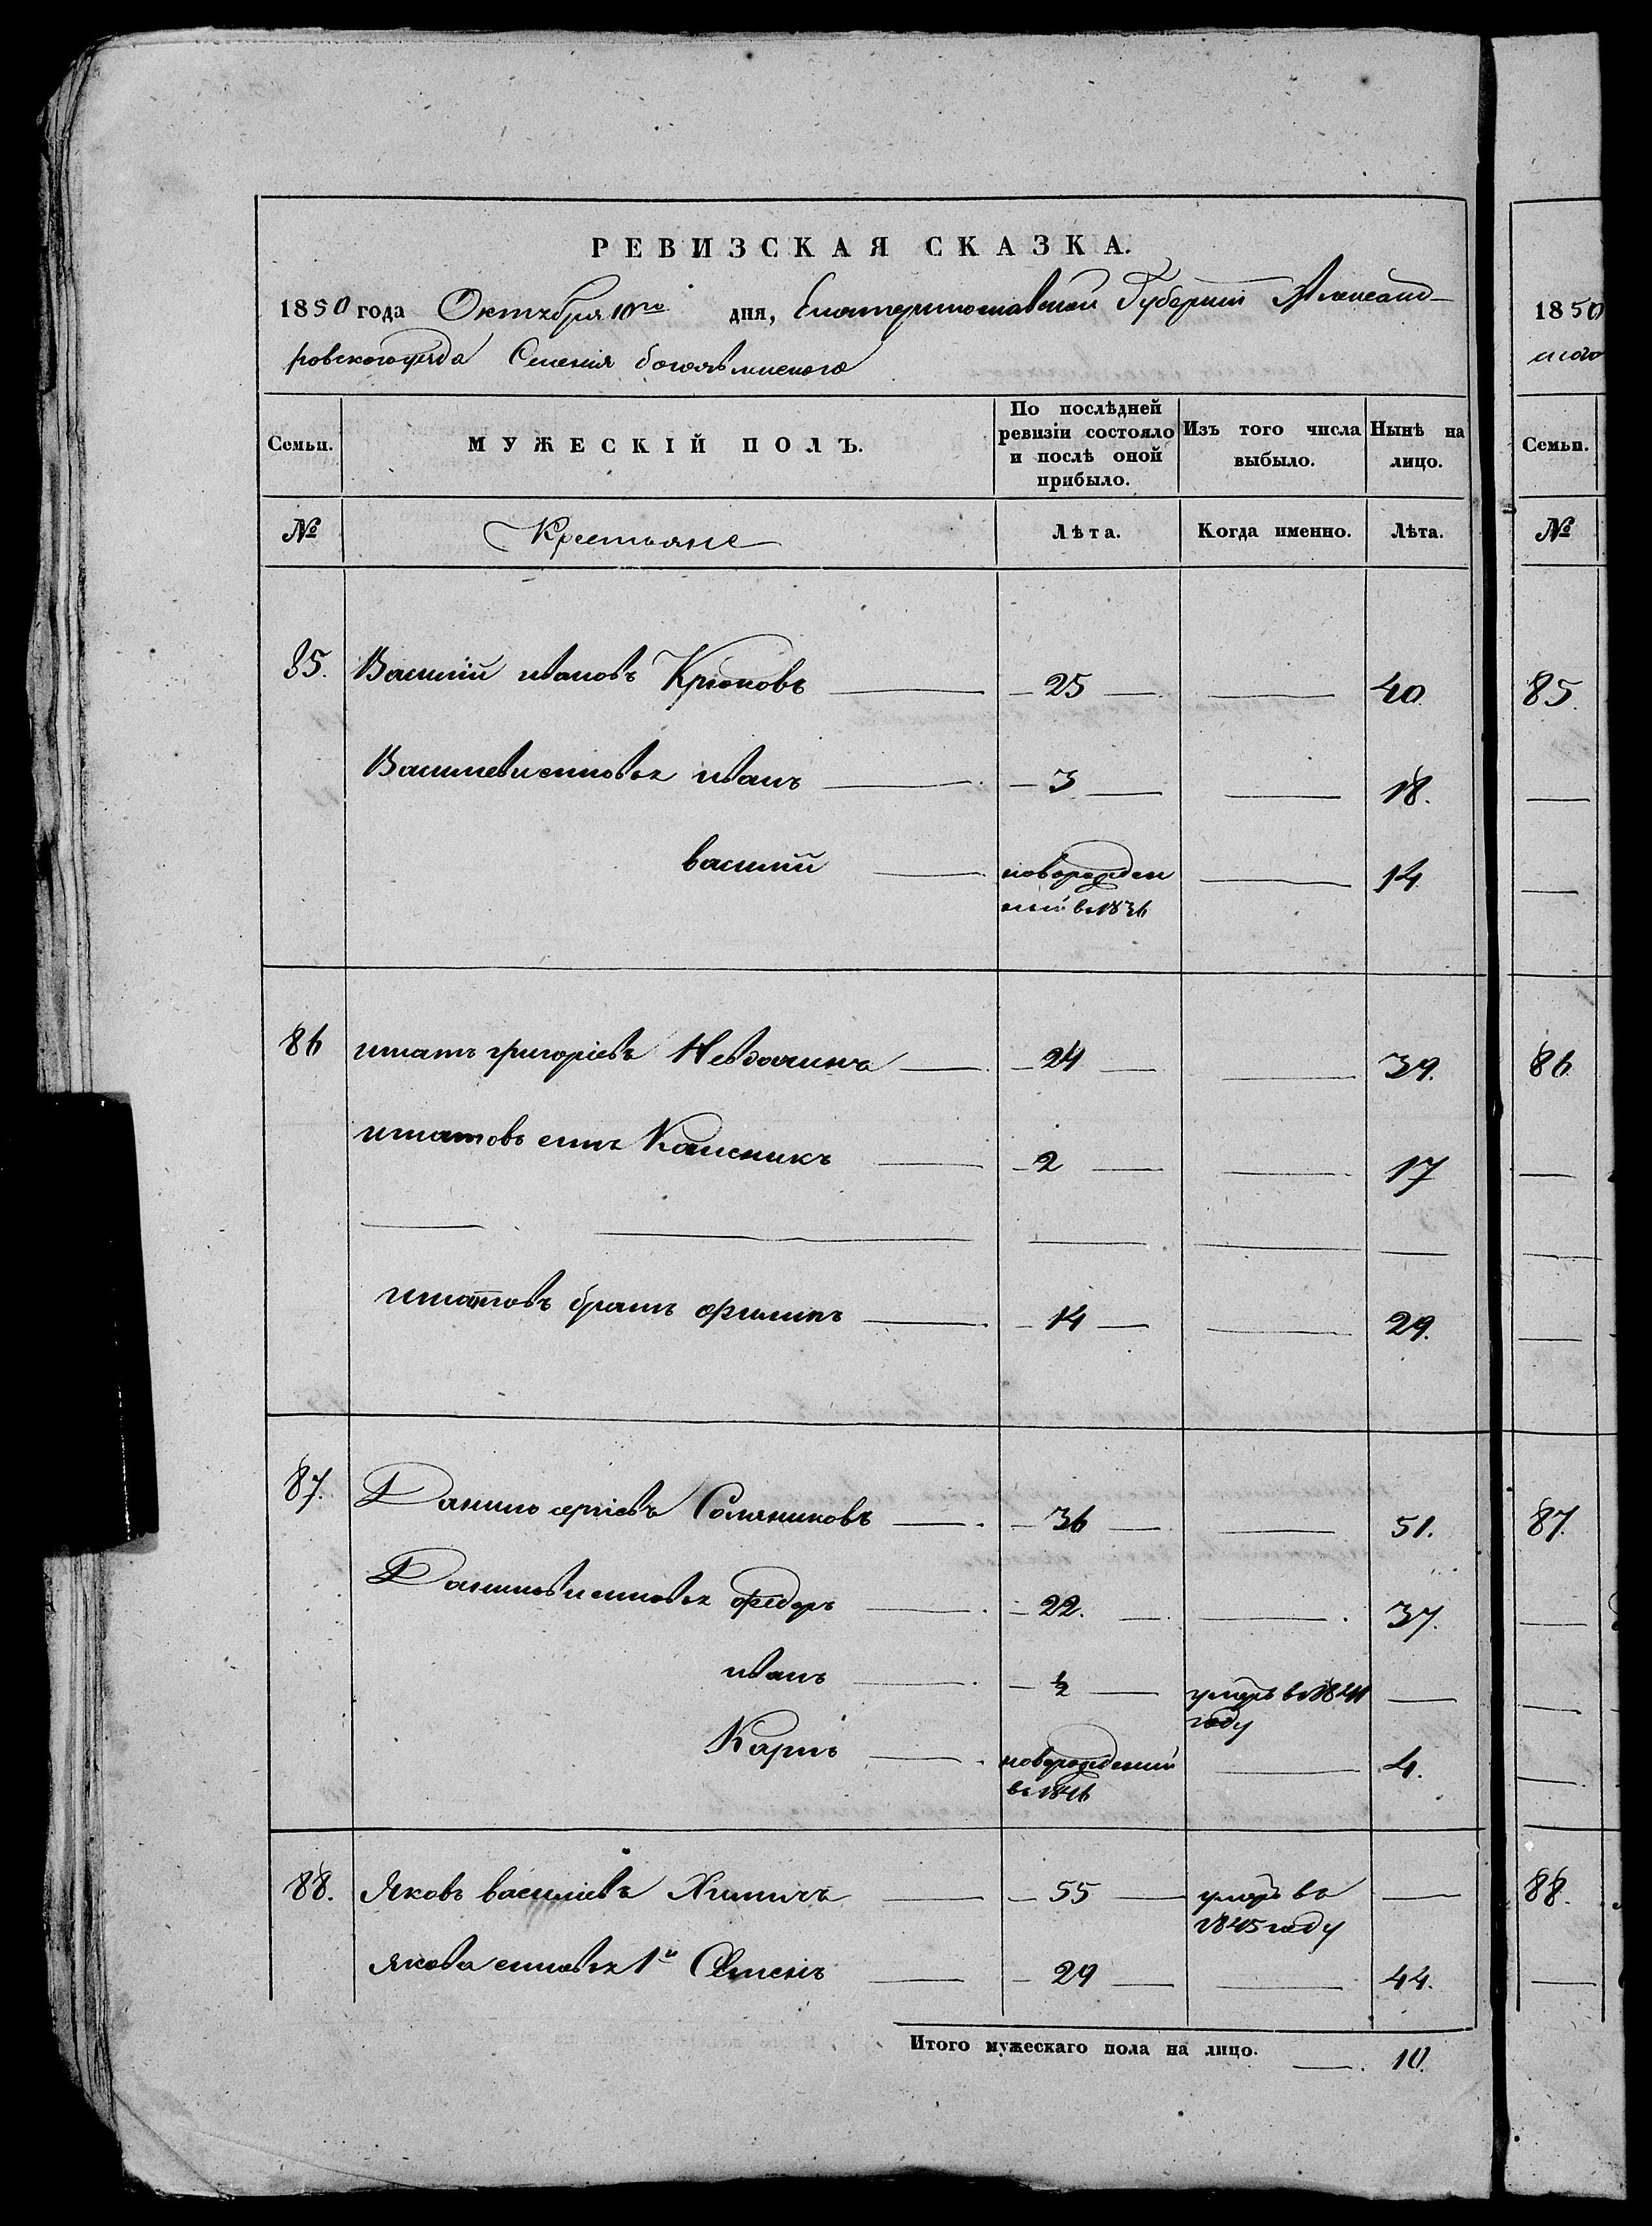 РЕВИЗСКАЯ СКАЗКА.
1850 года Октября 10го дня, Екатеринославской Губернии Александ-
ровского уезда Селения богоявленского
Семьи. МУЖЕСКІЙ ПОЛЪ. По послѣдней ревизіи состояло и послѣ оной прибыло. Изъ того числа выбыло. Нынѣ на лицо.
№ Крестьяне Лѣта. Когда именно. Лѣта.
85. Василій ивановъ Крюковъ — 25 — — 40
Васильевы сыновья иванъ — 3 — — 18.
василій — новорожден ный въ 1836 — 14
86 игнатъ григоріевъ — 24 — — 39.
игнатовъ сынъ — 2 — — 17
игнатовъ братъ филипъ — 14 — — 29.
87. Данило сергіевъ Соляниковъ — 36 — — 51.
Даниловы сыновья федоръ — 22. — — 37.
иванъ — ½ — умеръ въ 1841 году —
Карпъ — новорожденый въ 1846 — 4.
88. Яковъ василіевъ Химичъ — 55 — умеръ въ 1845 году —
якова сыновья 1й Семенъ — 29 — — 44.
Итого мужескаго пола на лицо. — 10.
1850
Семьи.
№
85.
86
87.
88.